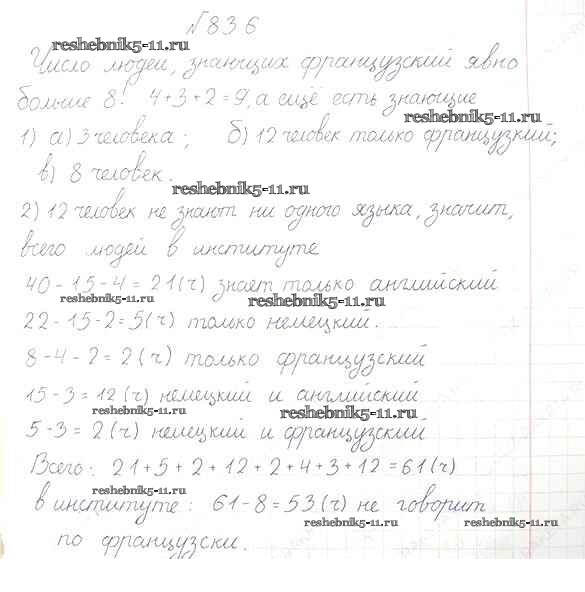 №836
reshebnik5-11.ru
Число людей, знающих французский явно
больше 8! 4+3+2=9, а ещё есть знающие
reshebnik5-11.ru
1) а) 3 человека; б) 12 человек только французкий;
в) 8 человек.
reshebnik5-11.ru
2) 12 человек не знают ни одного языка, значит,
всего людей в институте
40-15-4=21(ч) знает только английский
reshebnik5-11.ru reshebnik5-11.ru
22-15-2=5(ч) только немецкий.
8-4-2=2(ч) только французский
15-3=12(ч) немецкий и английский
reshebnik5-11.ru reshebnik5-11.ru
5-3=2(ч) немецкий и французский
Всего: 21+5+2+12+2+4+3+12=61(ч)
reshebnik5-11.ru
в институте: 61-8=53(ч) не говорит
reshebnik5-11.ru reshebnik5-11.ru
по французски.